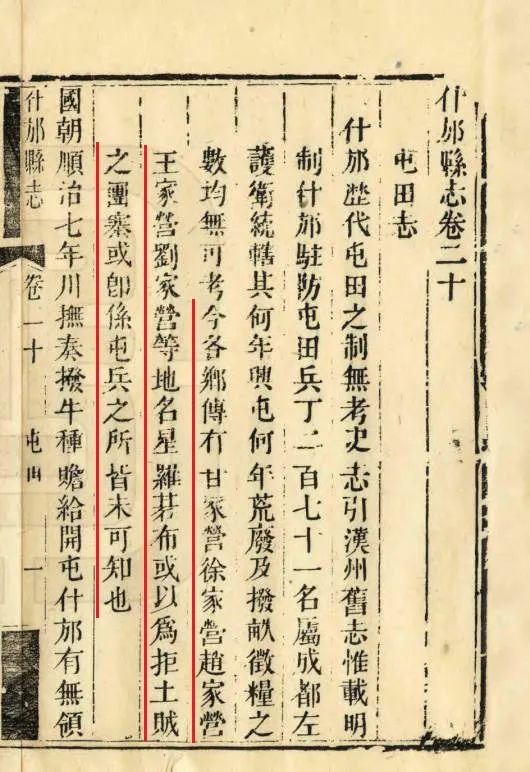 什邡縣志卷二十
屯田志
什邡歷代屯田之制無考史志引漢州舊志惟載明
制什邡駐防屯田兵丁二百七十一名屬成都左
護衛統轄其何年興屯何年荒廢及撥畝徵糧之
數均無可考今各鄉傳有甘家營徐家營趙家營
王家營劉家營等地名星羅碁布或以爲拒土賊
之團寨或卽係屯兵之所皆未可知也
國朝順治七年川撫奏撥牛種贍給開屯什邡有無領
什邡縣志
卷二十
屯田
一